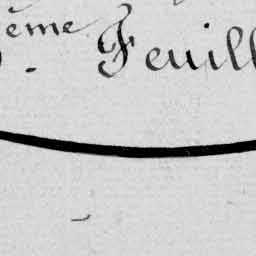 ème. Feuill